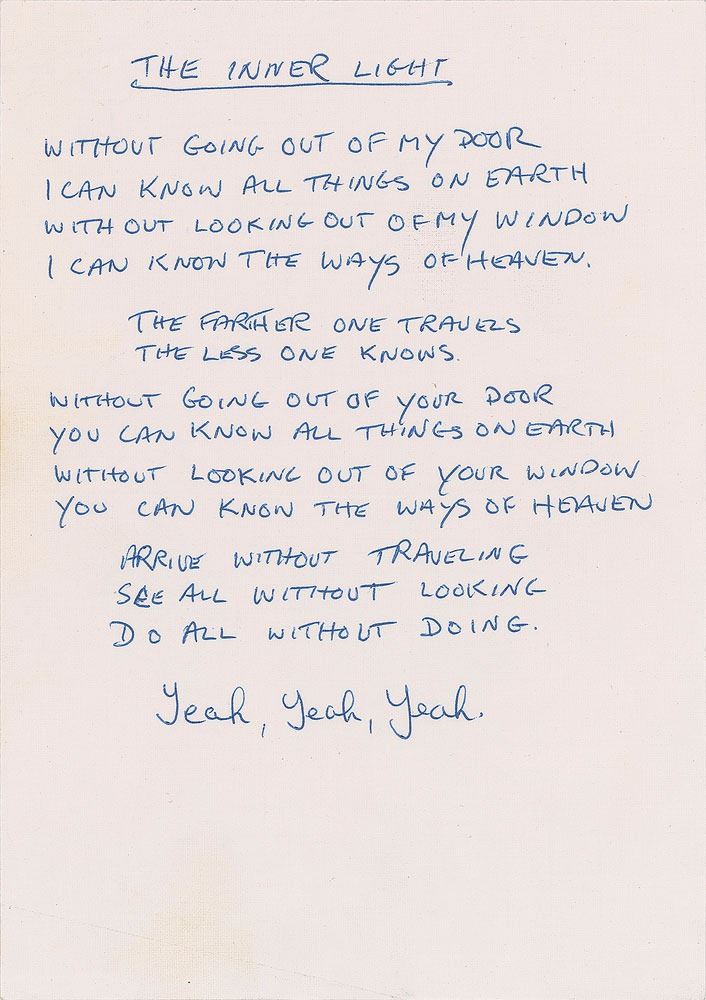 THE INNER LIGHT
WITHOUT GOING OUT OF MY DOOR
I CAN KNOW ALL THINGS ON EARTH
WITHOUT LOOKING OUT OF MY WINDOW
I CAN KNOW THE WAYS OF HEAVEN.
THE FARTHER ONE TRAVELS
THE LESS ONE KNOWS.
WITHOUT GOING OUT OF YOUR DOOR
YOU CAN KNOW ALL THINGS ON EARTH
WITHOUT LOOKING OUT OF YOUR WINDOW
YOU CAN KNOW THE WAYS OF HEAVEN
ARRIVE WITHOUT TRAVELING
SEE ALL WITHOUT LOOKING
DO ALL WITHOUT DOING.
Yeah, Yeah, Yeah.